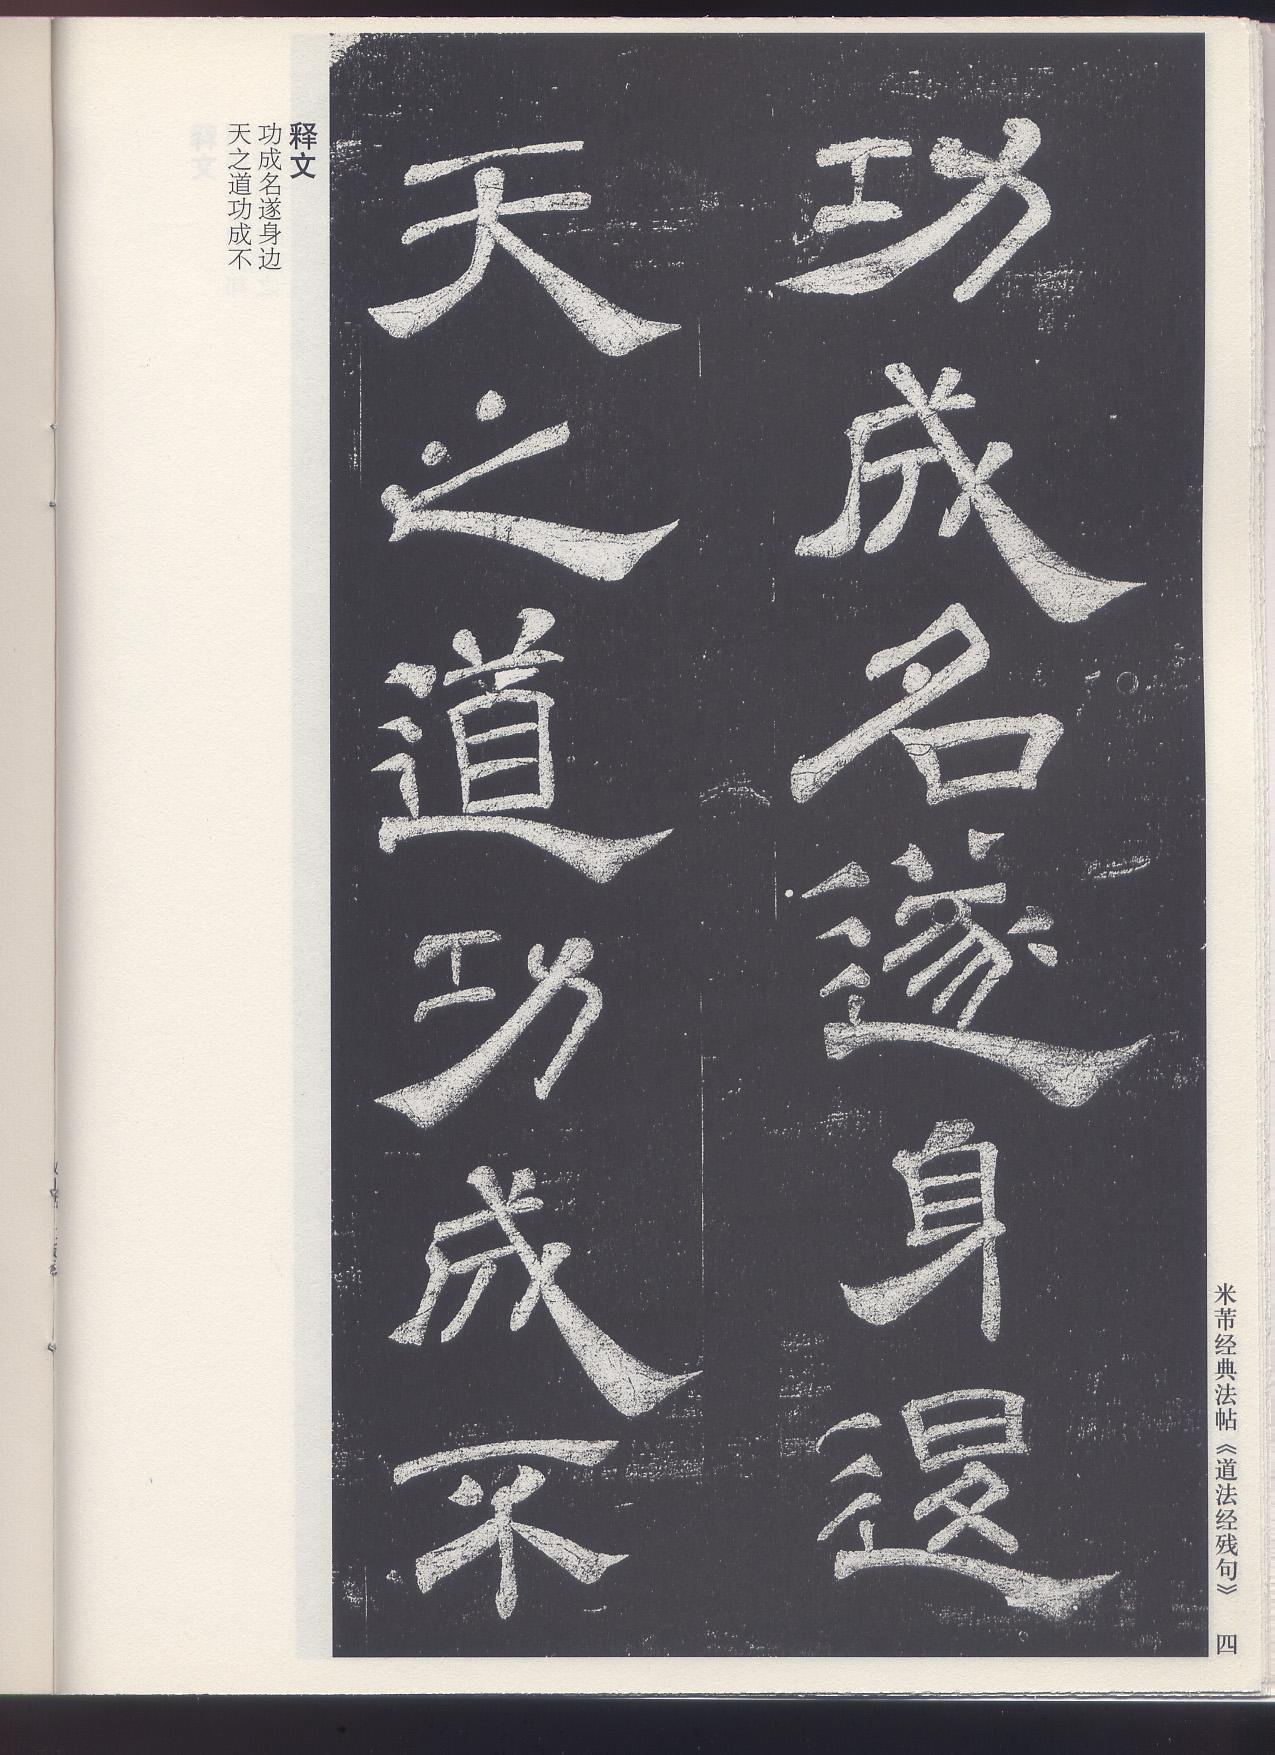 功成名遂身退
天之道功成不
释文
功成名遂身边
天之道功成不
米芾经典法帖《道法经残句》 四